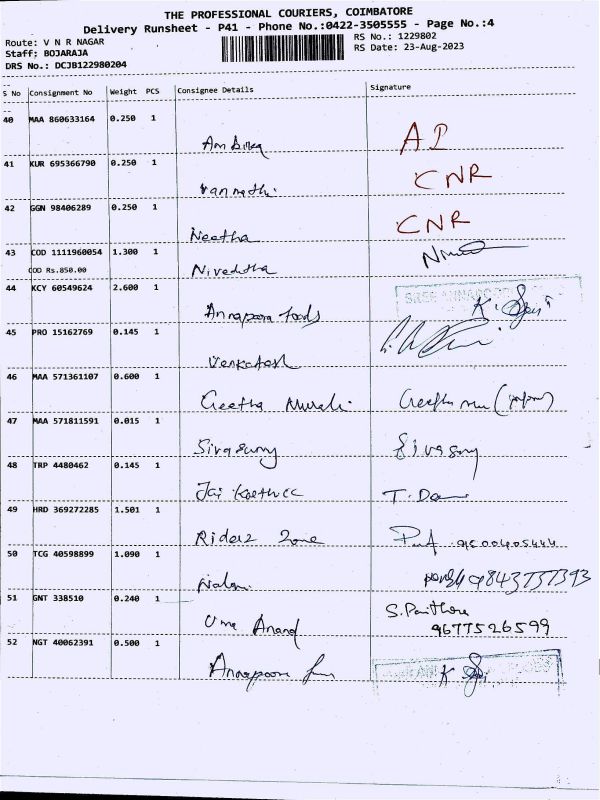 THE PROFESSIONAL COURIERS, COIMBATORE
Delivery Runsheet - P41 - Phone No.:0422-3505555 - Page No.:4
Route: V N R NAGAR
RS No.: 1229802
Staff: BOJARAJA
RS Date: 23-Aug-2023
DRS No.: DCJB122980204
S No Consignment No Weight PCS Consignee Details Signature
40 MAA 860633164 0.250 1
Ambika
41 KUR 695366790 0.250 1
CNR
42 GGN 98406289 0.250 1
Neetha CNR
43 COD 1111960054 1.300 1
COD Rs.850.00 Niveditha
44 KCY 60549624 2.600 1
Annapoora foods K.
45 PRO 15162769 0.145 1
Venkatesh
46 MAA 571361107 0.600 1
Geetha Murali
47 MAA 571811591 0.015 1
Sivasamy Sivasamy
48 TRP 4480462 0.145 1
Jai T.
49 HRD 369272285 1.501 1
Riderz Zone
50 TCG 40598899 1.090 1
51 GNT 338510 0.240 1
Uma Anand 9677526599
52 NGT 40062391 0.500 1
Annapoora K